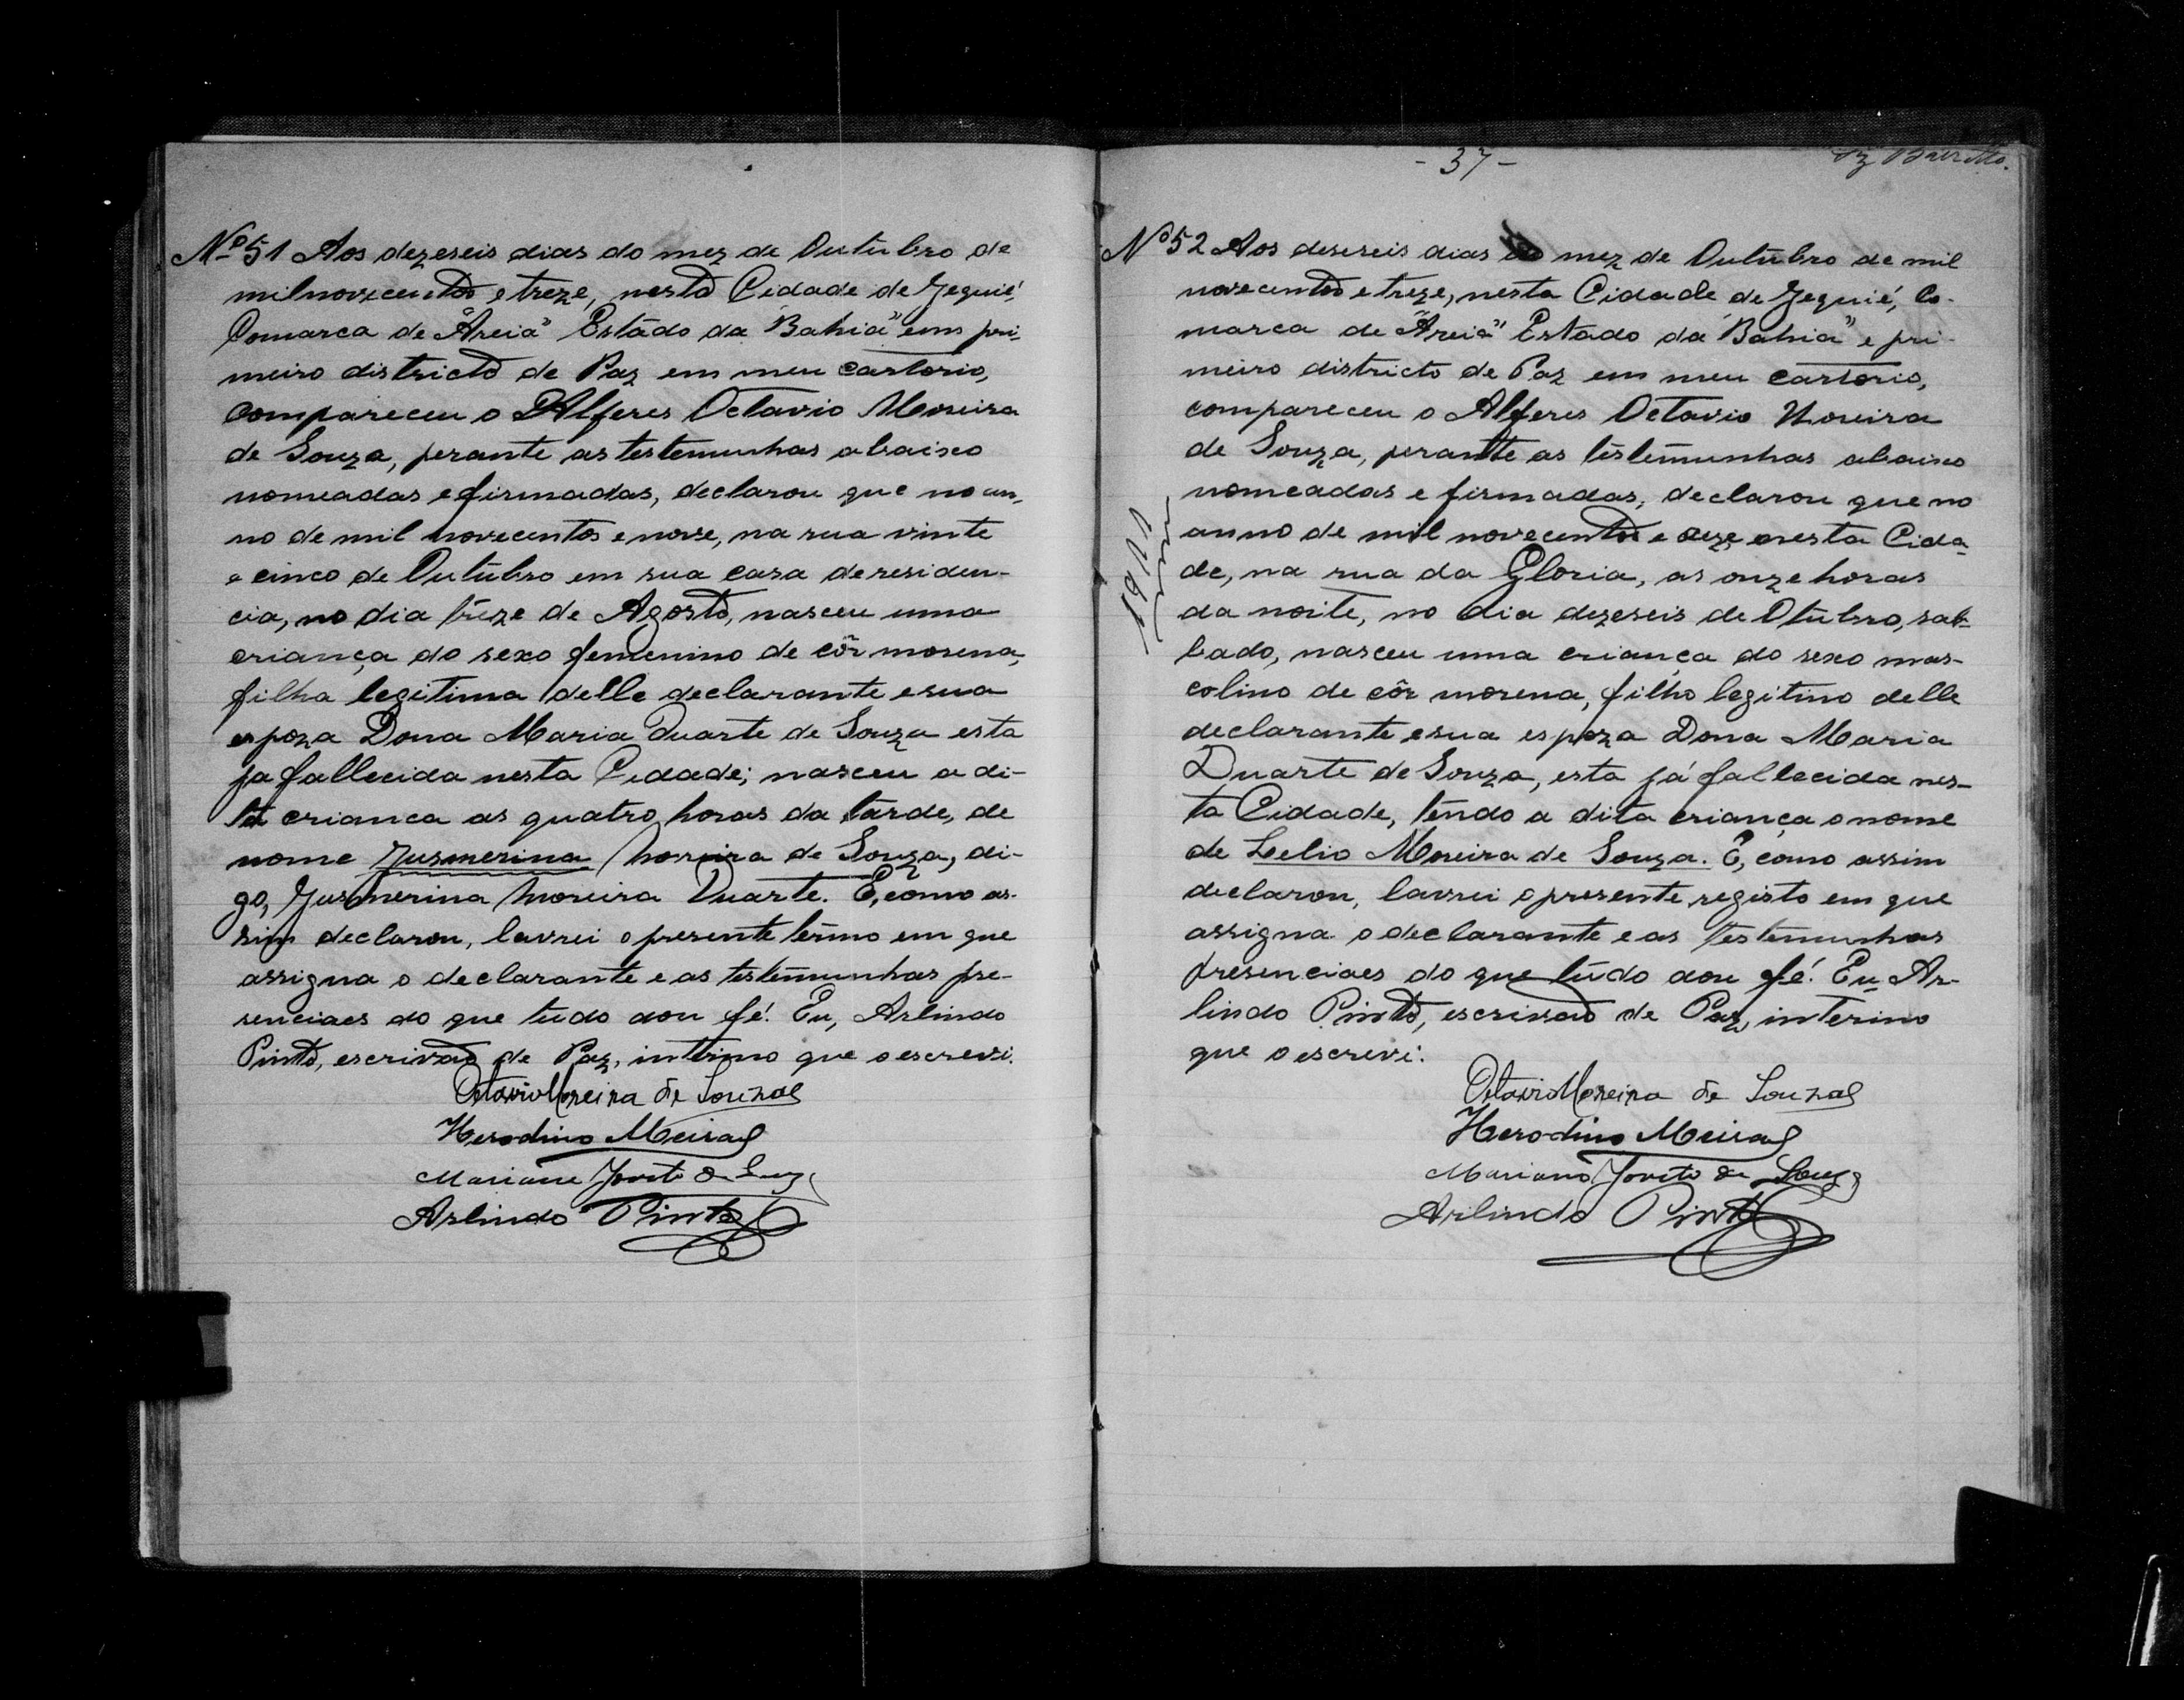 Nº 51 Aos dezeseis dias do mez de Outubro de
mil novecentos e treze, nesta Cidade de Jequié,
Comarca de "Areia" Estado da "Bahia" em pri-
meiro districto de Paz em meu cartorio,
compareceu o Alferes Octavio Moreira
de Souza, perante as testemunhas abaixo
nomeadas e firmadas, declarou que no an-
no de mil novecentos e nove, na rua vinte
e cinco de Outubro em sua casa de residen-
cia, no dia treze de Agosto, nasceu uma
criança do sexo femenino de côr morena,
filha legitima delle declarante e sua
espoza Dona Maria Duarte de Souza esta
ja fallecida nesta Cidade; nasceu a di-
ta crianca as quatro horas da tarde, de
nome Jusmerina Moreira de Souza, di-
go, Jusmerina Moreira Duarte. E, como as-
sim declarou, lavrei o presente termo em que
assigna o declarante e as testemunhas pre-
senciaes do que tudo dou fé. Eu, Arlindo
Pinto, escrivão de Paz, interino que o escrevi.
Octavio Moreira de Souza
Herodino Meira
Mariano de Souza
Arlindo Pinto
- 37 -
Barretto.
Nº 52 Aos deseseis dias do mez de Outubro de mil
novecentos e treze, nesta Cidade de Jequié, Co-
marca de "Areia" Estado da "Bahia" e pri-
meiro districto de Paz em meu cartorio,
compareceu o Alferes Octavio Moreira
de Souza, perante as testemunhas abaixo
nomeadas e firmadas, declarou que no
anno de mil novecentos e nesta Cida-
de, na rua da Gloria, as onze horas
da noite, no dia dezeseis de Otubro, sab-
bado, nasceu uma criança do sexo mas-
colino de côr morena, filho legitino delle
declarante e sua espoza Dona Maria
Duarte de Souza, esta já fallecida nes-
ta Cidade, tendo a dita criança o nome
de Lelio Moreira de Souza. E, como assim
declarou, lavrei o presente registo em que
assigna o declarante e as testemunhas
presenciaes do que tudo dou fé. Eu, Ar-
lindo Pinto, escrivão de Paz, interino
que o escrevi.
1911
Octavio Moreira de Souza
Herodino Meira
Mariano de Souza
Arlindo Pinto